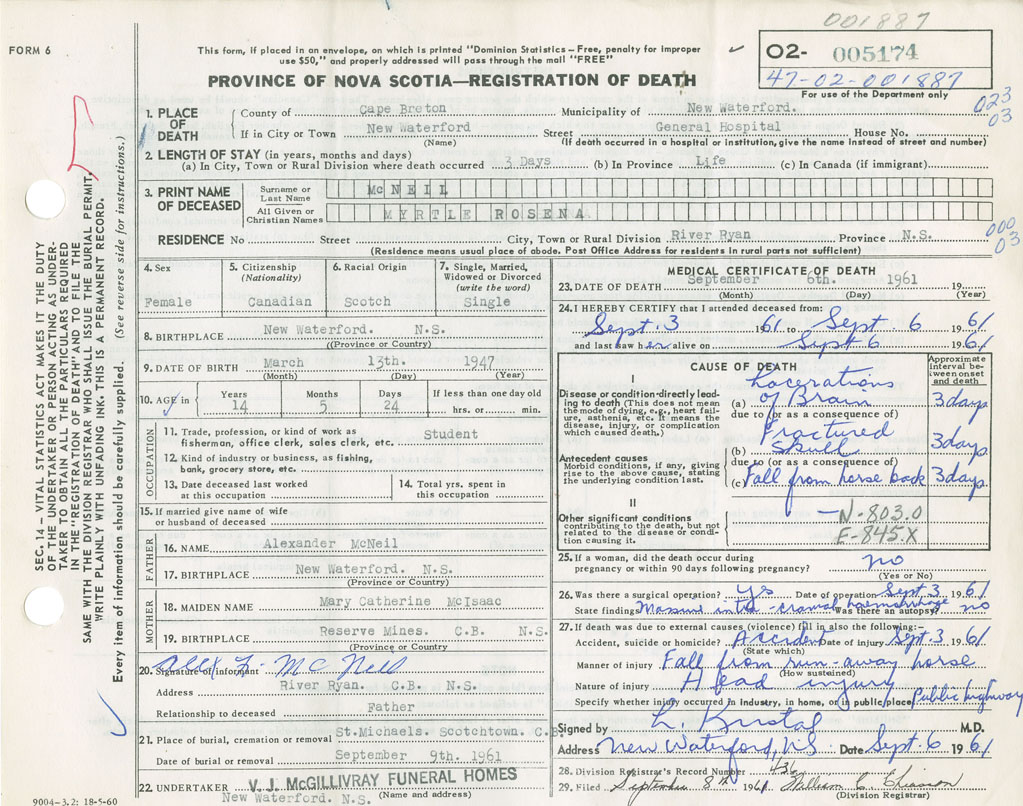 001887
FORM 6
This form, if placed in an envelope, on which is printed "Dominion Statistics – Free, penalty for improper
use $50," and properly addressed will pass through the mail "FREE"
PROVINCE OF NOVA SCOTIA—REGISTRATION OF DEATH
O2- 005174
47-02-001887
For use of the Department only
023
03
1. PLACE OF DEATH
County of Cape Breton Municipality of New Waterford.
If in City or Town New Waterford Street General Hospital House No.
(Name) (If death occurred in a hospital or institution, give the name instead of street and number)
2. LENGTH OF STAY (in years, months and days)
(a) In City, Town or Rural Division where death occurred 3 Days (b) In Province Life (c) In Canada (if immigrant)
3. PRINT NAME OF DECEASED
Surname or Last Name McNEIL
All Given or Christian Names MYRTLE ROSENA
000
03
RESIDENCE No Street City, Town or Rural Division River Ryan Province N.S.
(Residence means usual place of abode. Post Office Address for residents in rural parts not sufficient)
4. Sex Female
5. Citizenship (Nationality) Canadian
6. Racial Origin Scotch
7. Single, Married, Widowed or Divorced (write the word) Single
8. BIRTHPLACE New Waterford. N.S.
(Province or Country)
9. DATE OF BIRTH March 13th. 1947
(Month) (Day) (Year)
10. AGE in Years 14 Months 5 Days 24 If less than one day old hrs. or min.
OCCUPATION
11. Trade, profession, or kind of work as
fisherman, office clerk, sales clerk, etc. Student
12. Kind of industry or business, as fishing,
bank, grocery store, etc.
13. Date deceased last worked
at this occupation
14. Total yrs. spent in
this occupation
15. If married give name of wife
or husband of deceased
FATHER
16. NAME Alexander McNeil
17. BIRTHPLACE New Waterford. N.S.
(Province or Country)
MOTHER
18. MAIDEN NAME Mary Catherine McIsaac
19. BIRTHPLACE Reserve Mines. C.B. N.S.
(Province or Country)
20. Signature of informant McNeil
Address River Ryan. C.B. N.S.
Relationship to deceased Father
21. Place of burial, cremation or removal St.Michaels. Scotchtown. C.B.
Date of burial or removal September 9th. 1961
22. UNDERTAKER V. J. McGILLIVRAY FUNERAL HOMES
New Waterford. N.S. (Name and address)
9004-3.2: 18-5-60
MEDICAL CERTIFICATE OF DEATH
23. DATE OF DEATH September 6th. 1961 19
(Month) (Day) (Year)
24. I HEREBY CERTIFY that I attended deceased from:
Sept. 3 1961 to Sept. 6 1961
and last saw her alive on Sept 6 1961
CAUSE OF DEATH
Approximate interval between onset and death
I
Disease or condition directly leading to death (This does not mean the mode of dying, e.g., heart failure, asthenia, etc. It means the disease, injury, or complication which caused death.)
(a) Lacerations of Brain 3 days
due to (or as a consequence of)
Antecedent causes
Morbid conditions, if any, giving rise to the above cause, stating the underlying condition last.
(b) Fractured Skull 3 days
due to (or as a consequence of)
(c) Fall from horse back 3 days
II
Other significant conditions
contributing to the death, but not related to the disease or condition causing it.
N-803.0
E-845.X
25. If a woman, did the death occur during
pregnancy or within 90 days following pregnancy? no
(Yes or No)
26. Was there a surgical operation? yes Date of operation Sept 3 1961
State findings Massive intra-cranial haemorrhage Was there an autopsy? no
27. If death was due to external causes (violence) fill in also the following:–
Accident, suicide or homicide? Accident Date of injury Sept. 3 1961
(State which)
Manner of injury Fall from run-away horse
(How sustained)
Nature of injury Head injury
Specify whether injury occurred in industry, in home, or in public place public highway
Signed by M.D.
Address New Waterford, NS Date Sept 6 1961
28. Division Registrar's Record Number 436
29. Filed September 8th 1961
(Division Registrar)
SEC. 14 – VITAL STATISTICS ACT MAKES IT THE DUTY
OF THE UNDERTAKER OR PERSON ACTING AS UNDER-
TAKER TO OBTAIN ALL THE PARTICULARS REQUIRED
IN THE "REGISTRATION OF DEATH" AND TO FILE THE
SAME WITH THE DIVISION REGISTRAR WHO SHALL ISSUE THE BURIAL PERMIT.
WRITE PLAINLY WITH UNFADING INK. THIS IS A PERMANENT RECORD.
Every item of information should be carefully supplied. (See reverse side for instructions.)